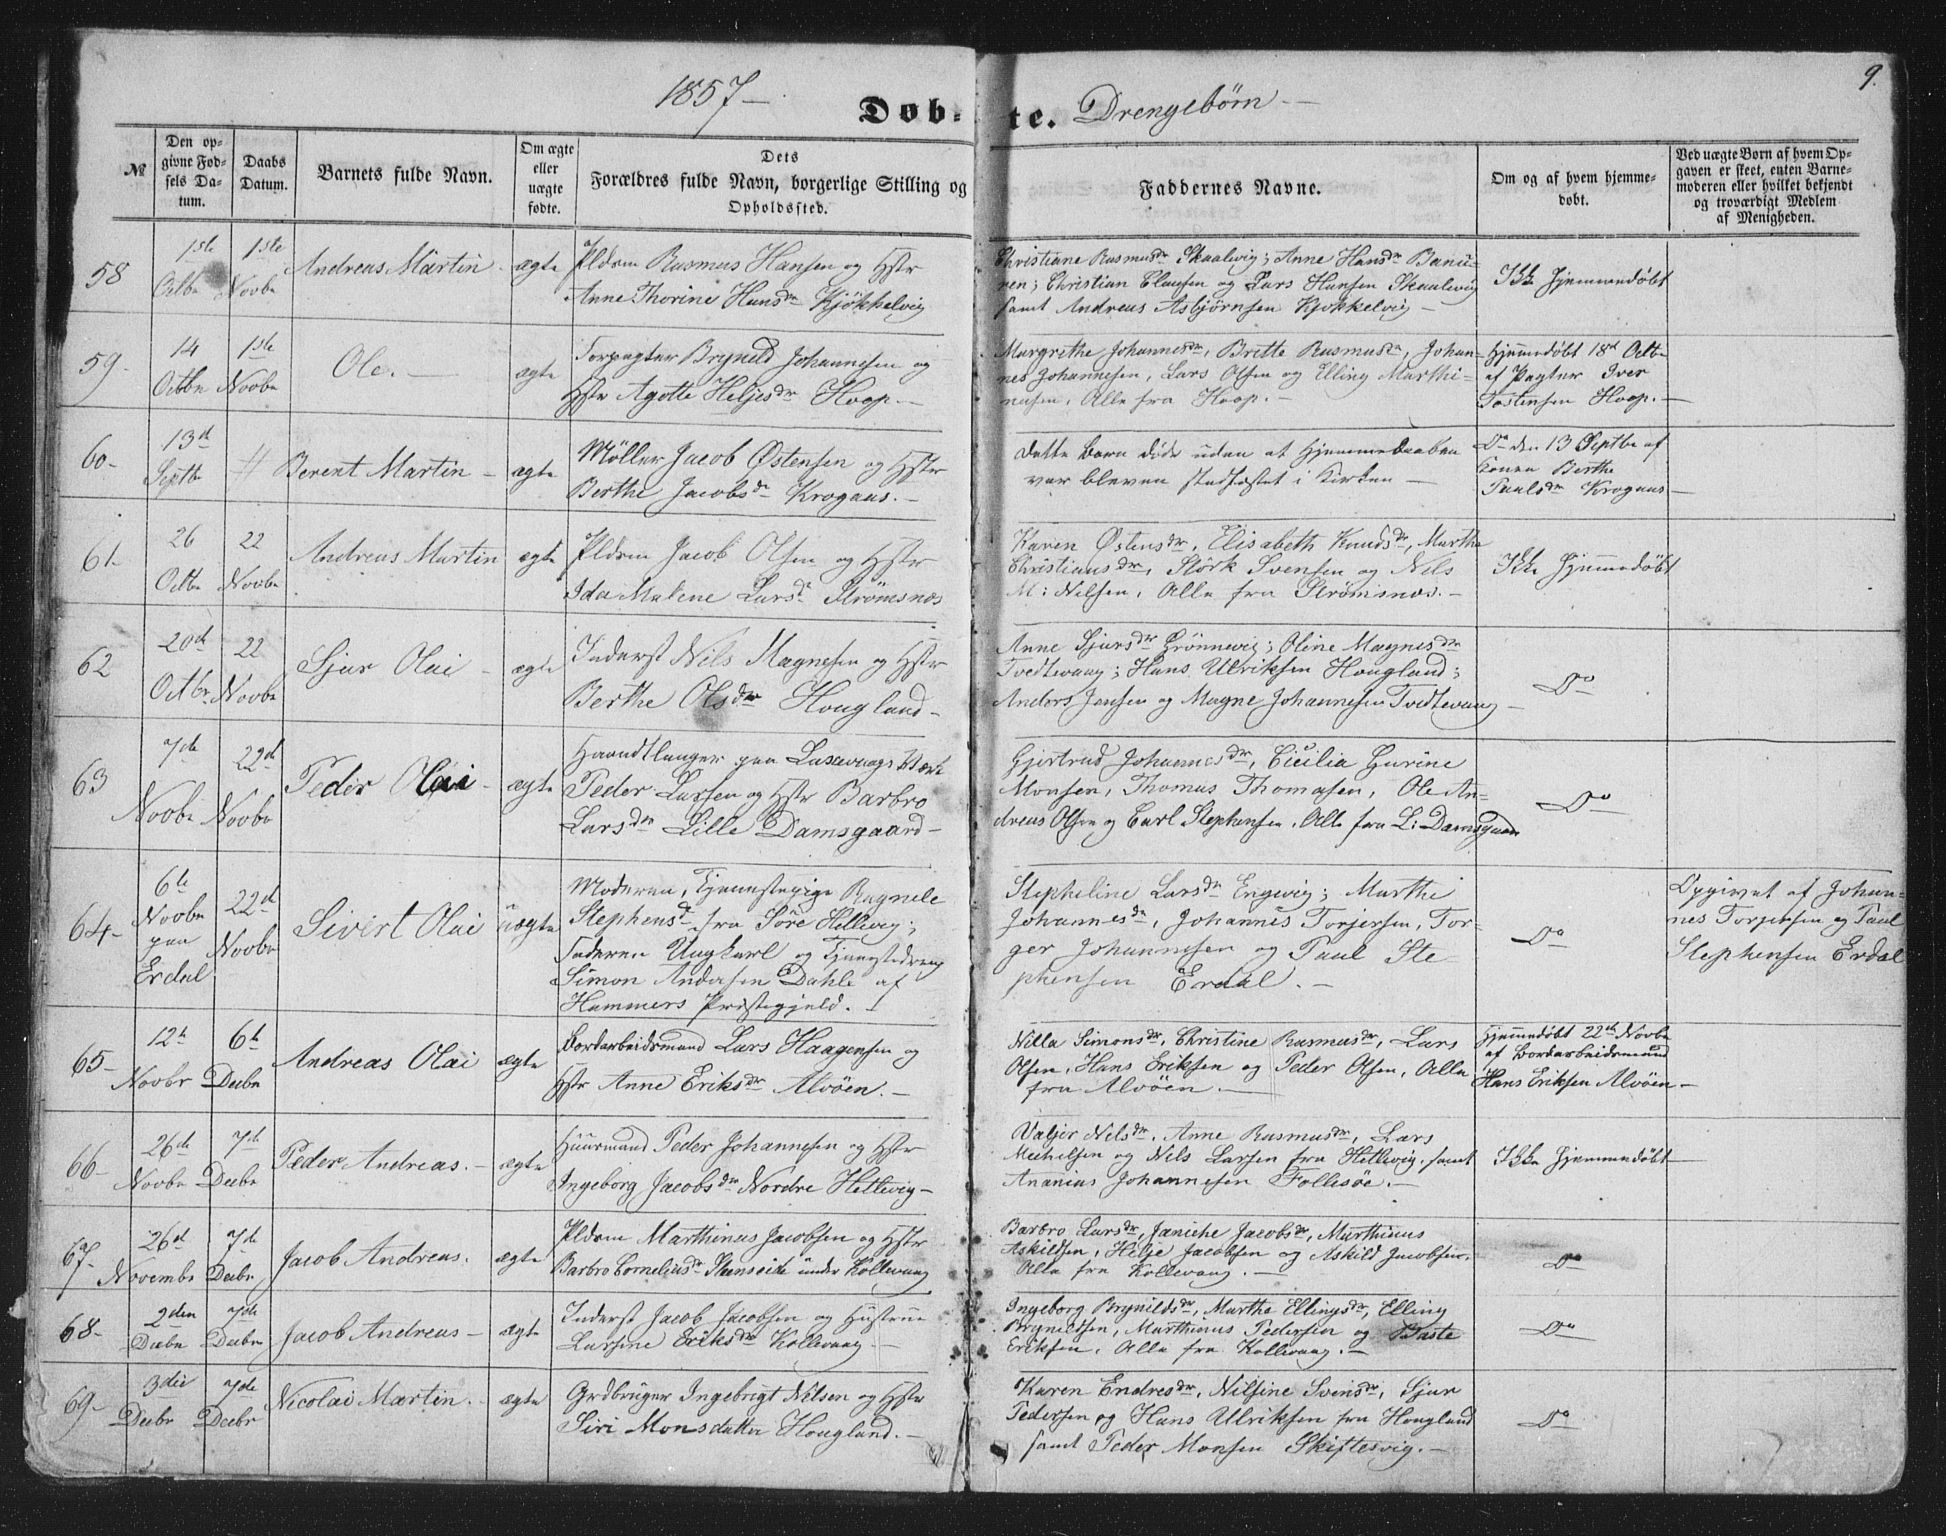 1857 –
Døb-te. Drengebørn –
9.
№
Den opgivne Fødsels Datum.
Daabs Datum.
Barnets fulde Navn.
Om ægte eller uægte fødte.
Dets Forældres fulde Navn, borgerlige Stilling og Opholdssted.
Faddernes Navne.
Om og af hvem hjemmedøbt.
Ved uægte Børn af hvem Opgaven er skeet, enten Barnemoderen eller hvilket bekjendt og troværdigt Medlem af Menigheden.
58
1ste Octbr
1ste Novbr
Andreas Martin
ægte
Pldsm Rasmus Hansen og Hstr
Anne Thorine Hansdr Kjøkkelvig
Christiane Rasmusdr Skaalvig; Anne Hansdr
Christian Clausen og Lars Hansen Skaalevig
samt Andreas Asbjørnsen Kjøkkelvig –
Ikke Hjemmedøbt
59
14 Octbr
1ste Novbr
Ole. –
ægte
Forpagter Bryneld Johannesen og
Hstr Agotte Heljesdr Hoop. –
Margrethe Johannesdr, Britte Rasmusdr, Johan-
nes Johannesen, Lars Olsen og Elling Marthi-
nusen, Alle fra Hoop. –
Hjemmedøbt 18de Octbr
af Pagter Iver
Tostensen Hoop. –
60
13de Septbr
//
Berent Martin –
ægte
Möller Jacob Østensen og Hstr
Berthe Jacobsdr Krogaas. –
Dette Barn døde uden at Hjemmedaaben
var bleven stadfæstet i Kirken –
Do den 13 Septbr af
Konen Berthe
Paulsdr Krogaas –
61
26 Octbr
22 Novbr
Andreas Martin
ægte
Pldsm Jacob Olsen og Hstr
Ida Malene Larsdr Strømsnæs
Karen Østensdr, Elisabeth Knudsdr, Marthe
Christiansdr, Størk Svensen og Nels
M: Nilsen, Alle fra Strømsnæs. –
Ikke Hjemmedøbt
62
20de Octbr
22 Novbr
Sjur Olai –
ægte
Inderst Nils Magnesen og Hstr
Berthe Olsdr Hougland –
Anne Sjursdr Grønnevig; Oline Magnesdr
Tvedtevang; Hans Ulriksen Hougland;
Anders Jansen og Magne Johannesen Tvedtevang –
Do
63
7de Novbr
22de Novbr
Peder Olai –
ægte
Haandtlanger paa Laxevaags Værk
Peder Larsen og Hstr Barbro
Larsdr Lille Damsgaard –
Gjertrud Johannesdr, Cicilia Gurine
Monsen, Thomas Thomasen, Ole An-
dreas Olsen og Carl Stephensen, Alle fra L: Damsgaard
Do
64 –
6te Novbr paa Erdal
22de Novbr
Sivert Olai
uægte
Moderen, Tjenestepige Ragnele
Stephensdr fra Søre Hetlevig;
Faderen Ungkarl og Tjenestedreng
Simon Andersen Dahle af
Hammers Præstegjeld. –
Stepheline Larsdr Engevig; Marthe
Johannesdr, Johannes Torjersen, Tor-
ger Johannesen og Paul Ste-
phensen Erdal. –
Do
Opgivet af Johan-
nes Torgersen og Paul
Stephensen Erdal
65 –
12te Novbr
6te Decbr
Andreas Olai
ægte
Bordarbeidsmand Lars Haagensen og
Hstr Anne Eriksdr Alvöen. –
Nilla Simonsdr, Christine Rasmusdr, Lars
Olsen, Hans Eriksen og Peder Olsen, Alle
fra Alvöen. –
Hjemmedøbt 22de Novbr
af Bordarbeidsmand
Hans Eriksen Alvöen –
66 –
26de Novbr
7de Decbr
Peder Andreas. –
ægte
Huusmand Peder Johannesen og Hstr
Ingeborg Jacobsdr Nordre Hetlevig –
Valjer Nelsdr, Anne Rasmusdr, Lars
Michelsen og Nels Larsen fra Hetlevig, samt
Ananias Johannesen Follesøe. –
Ikke Hjemmedøbt –
67 –
26de Novembr
7de Decbr
Jacob Andreas.
ægte
Pldsm Marthinus Jacobsen og Hstr
Barbro Corneliusdr Steenseide under Kollevaag
Barbro Larsdr, Janiche Jacobsdr, Marthinus
Askildsen, Helje Jacobsen og Askild Jacobsen.
Alle fra Kollevaag. –
Do
68 –
2den Decbr
7de Decbr
Jacob Andreas –
ægte
Inderst Jacob Jacobsen og Hustrue
Larsine Eriksdr Kollevaag –
Ingeborg Brynildsdr, Marthe Ellingsdr, Elling
Brynildsen, Marthinus Pedersen og Baste
Eriksen, Alle fra Kollevaag. –
Do
69 –
3die Decbr
7de Decbr
Nicolai Martin.
ægte
Grdbruger Ingebrigt Nilsen og Hstr
Siri Monsdatter Hougland. –
Karen Endresdr, Nilsine Svensdr, Sjur
Pedersen og Hans Ulriksen fra Hougland
samt Peder Monsen Skiftesvig. –
Do